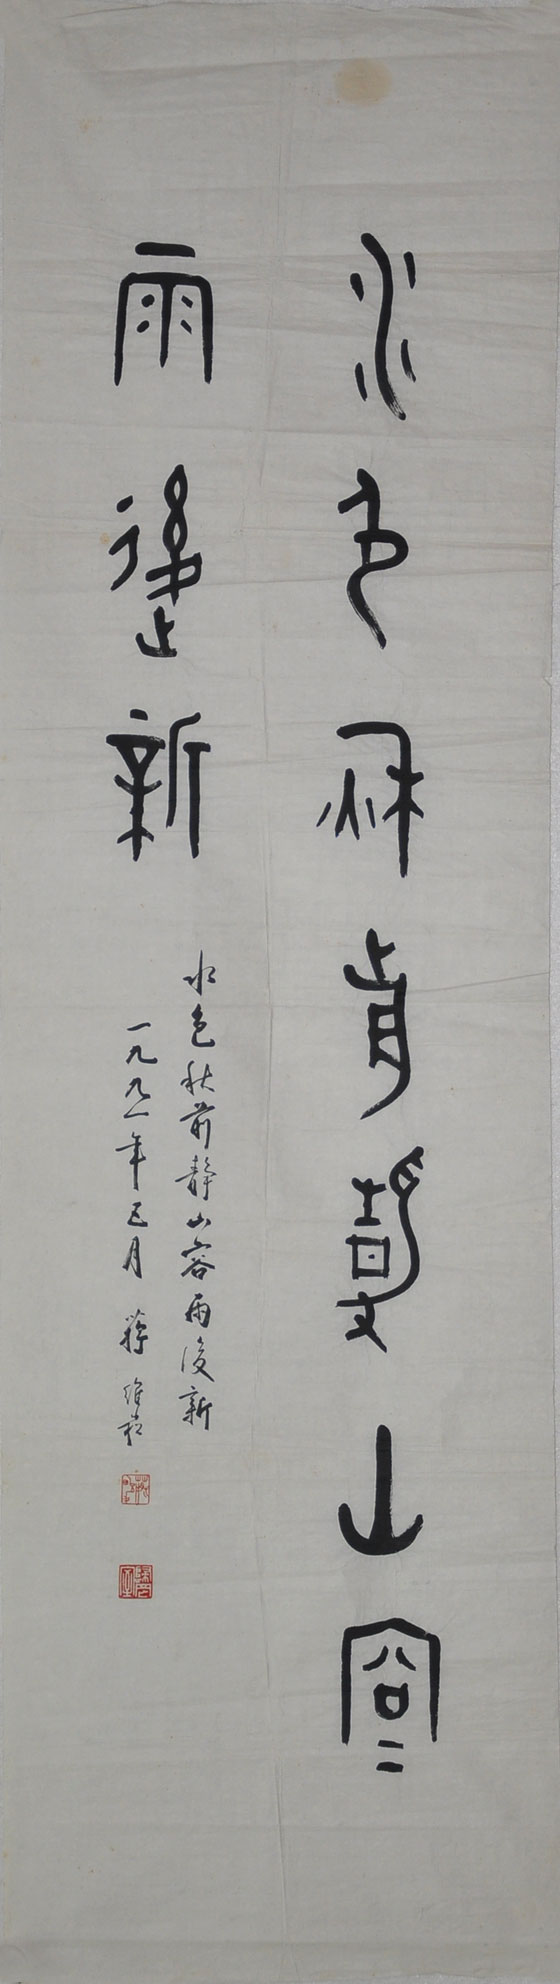 水色秋前靜山容
雨後新
水色秋前靜山容雨後新
一九九一年三月 蔣維崧